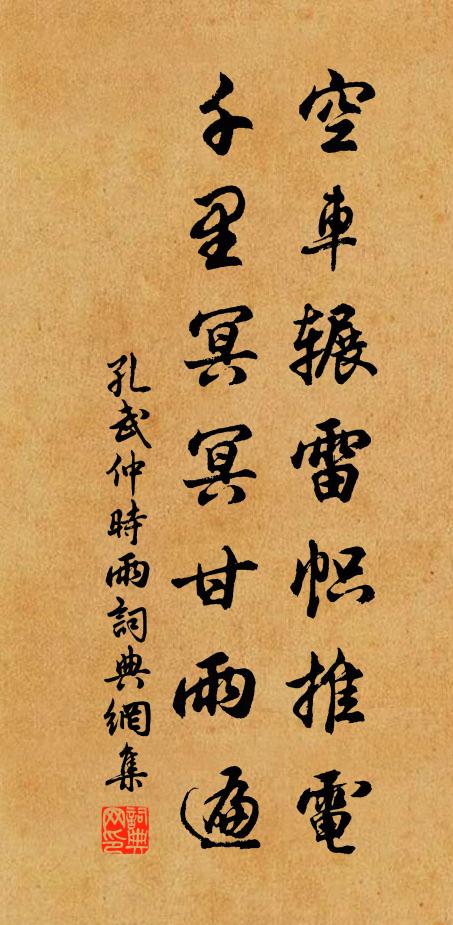 空車辗雷帜推電
千里冥冥甘雨遍
孔武仲時雨詞典網集
詞典网印